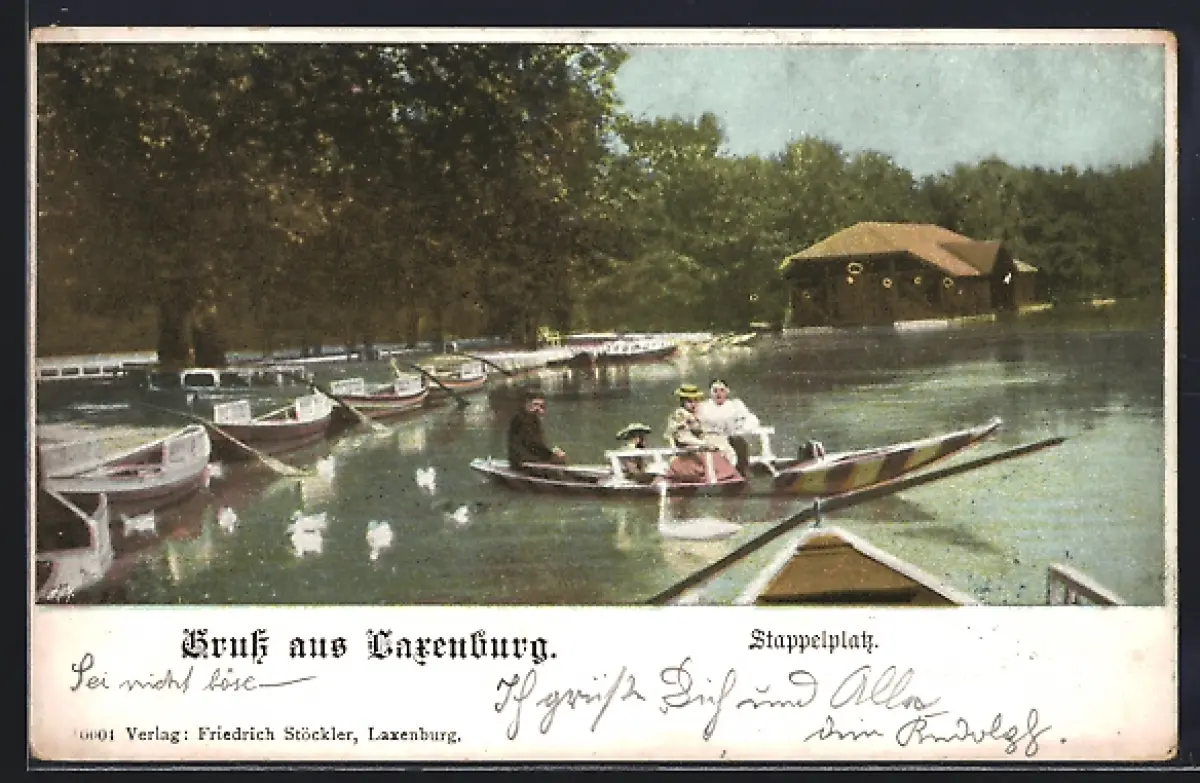 Gruß aus Laxenburg.
Stappelplatz.
Sei nicht böse—
Ich grüße Dich und Alle
dein Rudolph.
Verlag: Friedrich Stöckler, Laxenburg.